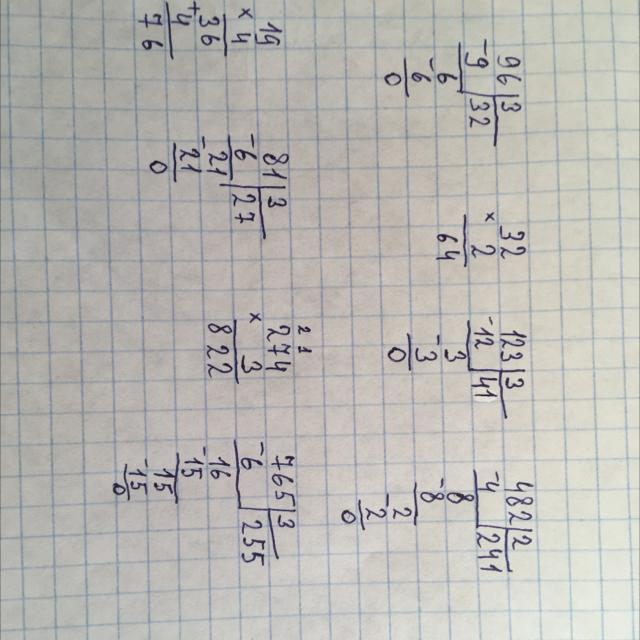 96|3
-9|32
6
-6
0
32
× 2
64
123|3
-12|41
3
-3
0
482|2
-4|241
8
-8
2
-2
0
19
× 4
36
+4
76
81|3
-6|27
-21
21
0
2 1
274
× 3
822
765|3
-6|255
16
-15
15
-15
0